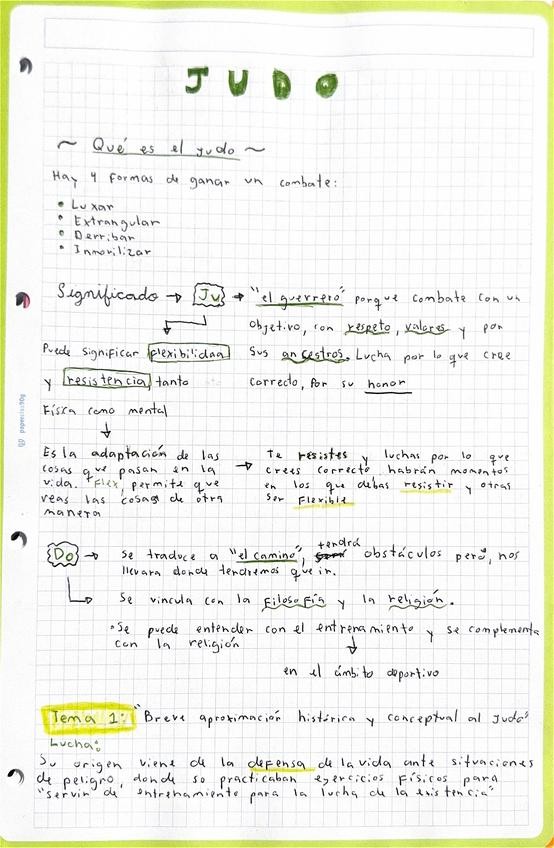 JUDO
~ Qué es el judo ~
Hay 4 formas de ganar un combate:
• Luxar
• Extrangular
• Derribar
• Inmovilizar
Significado → Ju → "el guerrero" porque combate con un
objetivo, con respeto, valores y por
sus ancestros. Lucha por lo que cree
correcto, por su honor
Puede significar flexibilidad
y resistencia, tanto
física como mental
Es la adaptación de las
cosas que pasan en la
vida. "Flex" permite que
veas las cosas de otra
manera
→ Te resistes y luchas por lo que
crees correcto habrán momentos
en los que debas resistir y otras
ser flexible
Do → se traduce a "el camino", tendrá obstáculos pero, nos
llevara donde tendremos que ir.
Se vincula con la filosofía y la religión.
•Se puede entender con el entrenamiento y se complementa
con la religión
en el ámbito deportivo
Tema 1: "Breve aproximación histórica y conceptual al Judo"
Lucha:
Su origen viene de la defensa de la vida ante situaciones
de peligro, donde se practicaban ejercicios físicos para
"servir de entrenamiento para la lucha de la existencia"